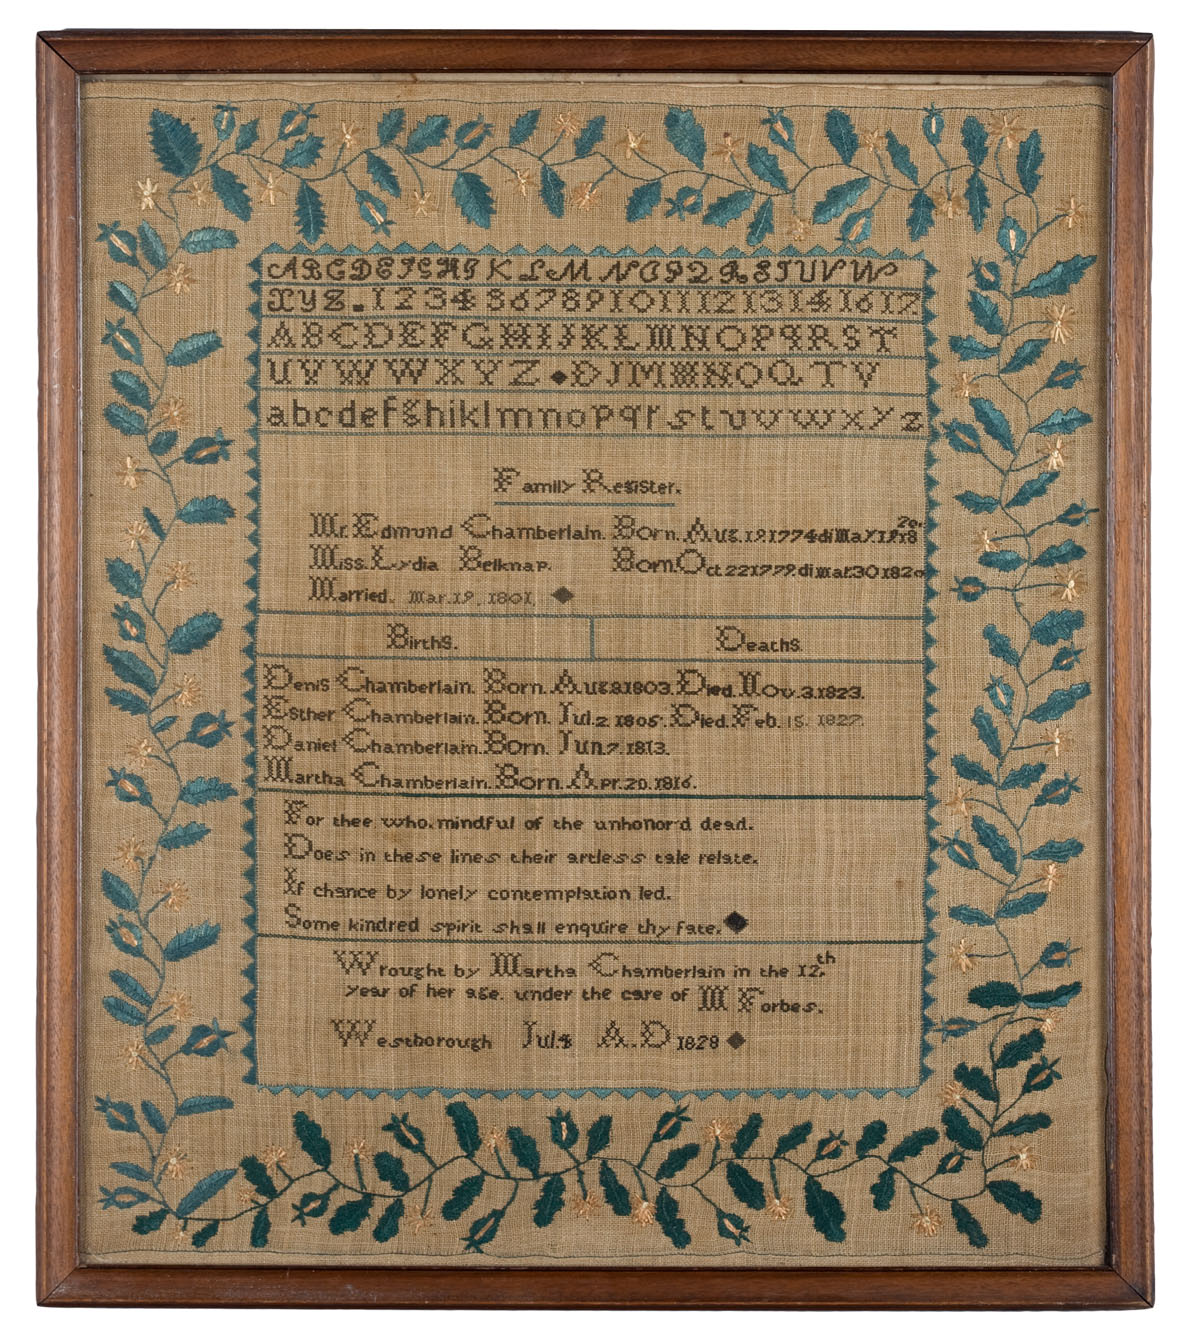 A B C D E F G H I K L M N O P Q R S T U V W
X Y Z . 1 2 3 4 5 6 7 8 9 10 11 12 13 14 16 17
A B C D E F G H I J K L M N O P Q R S T
U V W W X Y Z D J M N O Q T V
a b c d e f g h i k l m n o p q r s t u v w x y z
Family Register.
Mr. Edmund Chamberlain. Born. Aug. 19 1774 di May 1818 20.
Miss. Lydia Belknap. Born. Oct 22 1779. di mar. 30 1820
Married. Mar. 19, 1801,
Births. Deaths
Denis Chamberlain. Born. Aug 9 1803. Died. Nov. 3. 1823.
Esther Chamberlain. Born. Jul 2 1805. Died. Feb. 15. 1827.
Daniel Chamberlain. Born. Jun 7 1813.
Martha Chamberlain. Born. Apr. 20. 1816.
For thee who. mindful of the unhonor'd dead.
Does in these lines their artless tale relate.
If chance by lonely contemplation led.
Some kindred spirit shall enquire thy fate.
Wrought by Martha Chamberlain in the 12th
year of her age. under the care of M Forbes.
Westborough Jul. 4 A. D 1828